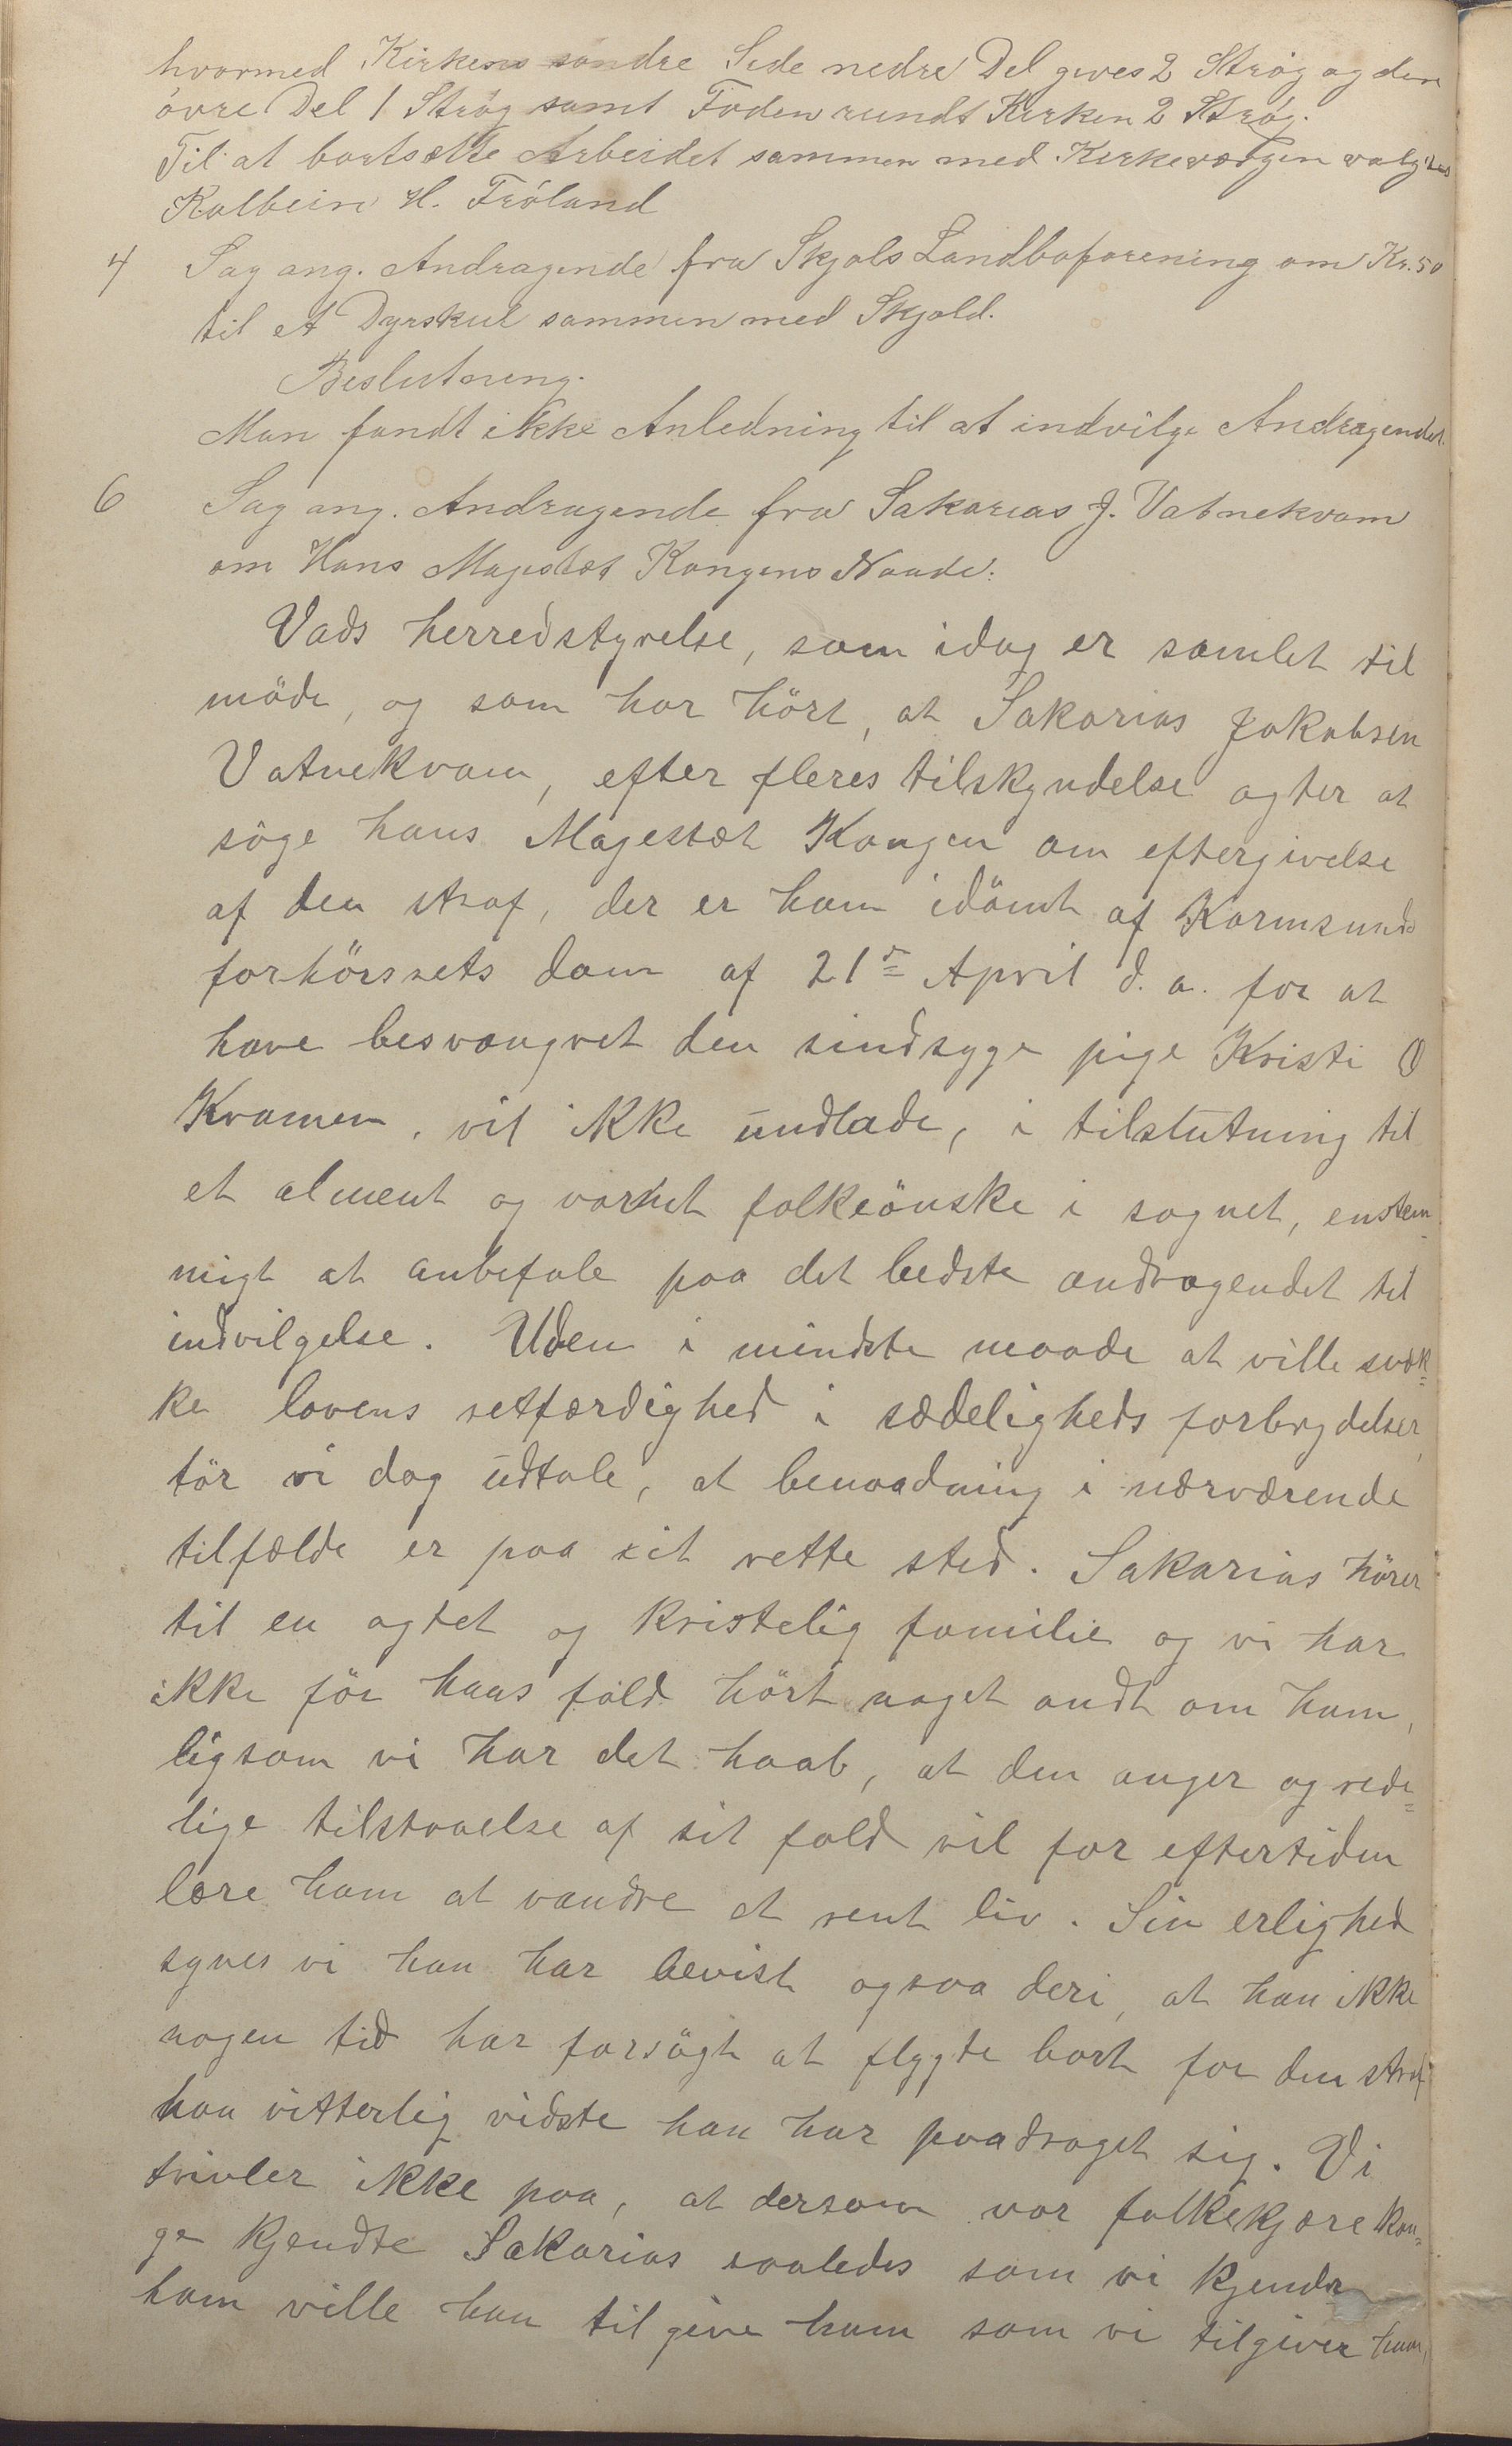 hvormed Kirkens søndre Side nedre Del gives 2 Strøg og den
övre Del 1 Strøg samt Foden rundt Kirken 2 Strøg.
Til at bortsætte Arbeidet sammen med Kirkeværgen valgtes
Kolbein H. Fröland
4 Sag ang. Andragende fra Skjols Landboforening om Kr. 50
til et Dyrskul sammen med Skjold.
Beslutning.
Man fandt ikke Anledning til at indvilge Andragendet.
6 Sag ang. Andragende fra Sakarias J. Vatnekvam
om Hans Majestæt Kongens Naade:
Vads herredstyrelse, som idag er samlet til
möde, og som har hört, at Sakarias Jakobsen
Vatnekvam, efter fleres tilskyndelse agter at
söge hans Magestæt Kongen om eftergivelse
af den straf, der er ham idömt af Karmsunds
forhörsrets dom af 21de April d. a. for at
have besvangret den sindsyge pige Kristi O
Kvamen, vil ikke undlade, i tilslutning til
et alment og varmt folkeönske i sognet, enstem-
migt at anbefale paa det bedste andragendet til
indvilgelse. Uden i mindste maade at ville svæk=
ke lovens retfærdighed i sædeligheds forbrydelser,
tör vi dog udtale, at benaadning i nærværende
tilfælde er paa sit rette sted. Sakarias hörer
til en agtet og kristelig familie og vi har
ikke för hans fald hört noget ondt om ham,
ligsom vi har det haab, at den anger og rede=
lige tilstaaelse af sit fald vil for eftertiden
lære ham at vandre et rent liv. Sin erlighed
synes vi han har bevist ogsaa deri, at han ikke
nogen tid har forsögt at flygte bort for den straf
han vitterlig vidste han har paadraget sig. Vi
tvivler ikke paa, at dersom vor folkekjære kon=
ge kjendte Sakarias saaledes som vi kjender
ham ville han tilgive ham som vi tilgiver ham,